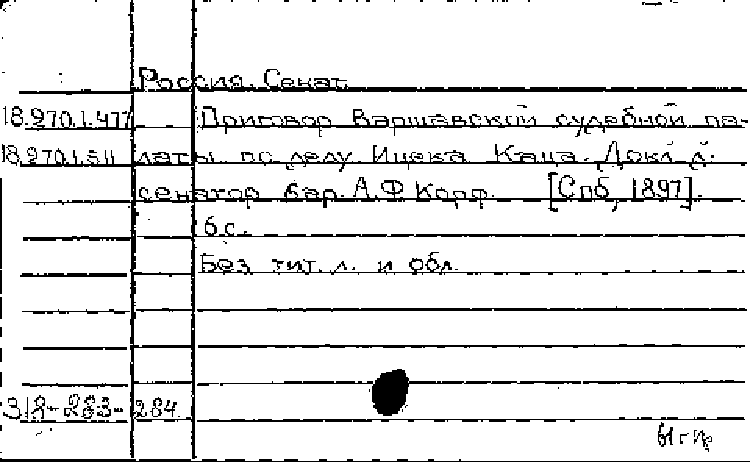 Россия. Сенат.
18.270.1.477 Приговор Варшавской судебной па-
18.270.1.511 латы по делу Ицека Каца. Докл. д.
сенатор бар. А.Ф. Корф. [Спб, 1897].
6 с.
Без тит. л. и обл.
318-283-284